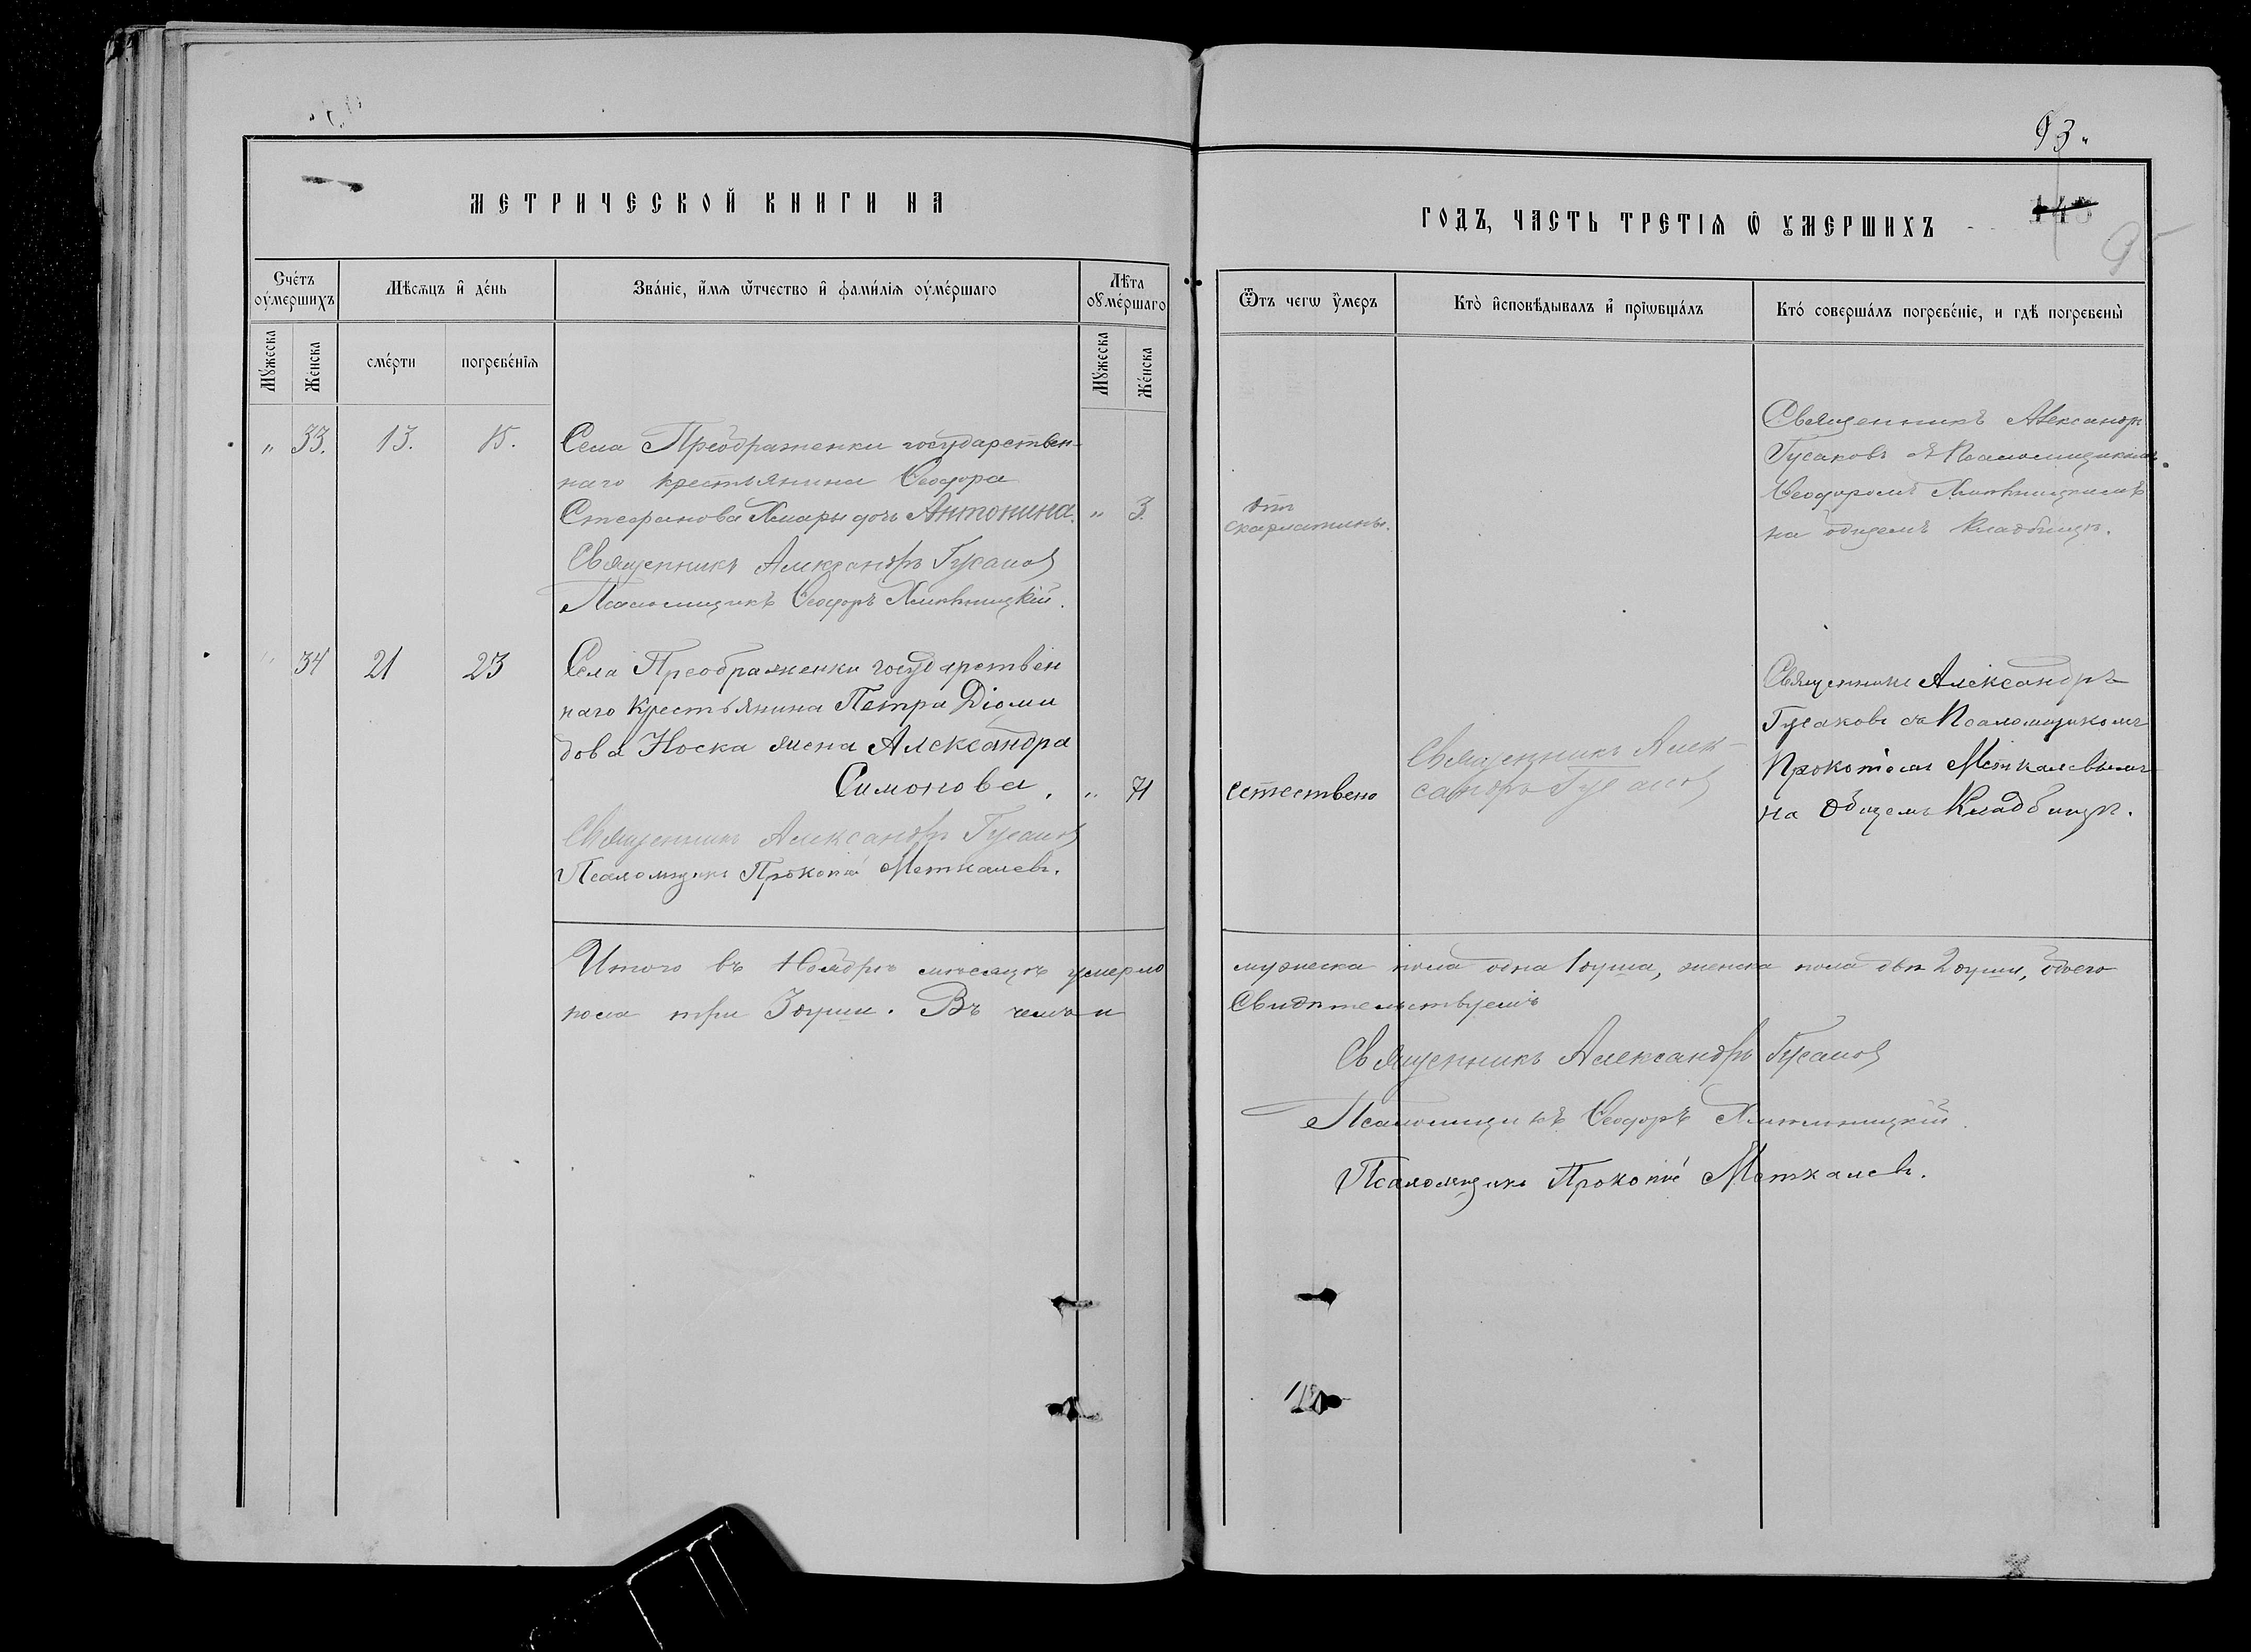 93
МЕТРИЧЕСКОЙ КНИГИ НА
ГОДЪ, ЧАСТЬ ТРЕТІѦ Ѿ ОУМЕРШИХЪ
148
95
Сче́тъ оуме́ршихъ
Мѣсѧцъ и де́нь
Зва́ніе, и́мѧ ѿтчество и фами́лія оуме́ршаго
Лѣта оуме́ршаго
Ѿтъ чегѡ оумеръ
Кто̀ исповѣдывалъ и прїѡбща́лъ
Кто́ соверша́лъ погребе́ніе, и гдѣ погребены̀
Мужеска
Же́нска
сме́рти
погребе́нїѧ
Мужеска
Же́нска
" 33. 13. 15. Села Преображенки государствен-
наго крестьянина Ѳеодора
Стефанова Хмары дочь Антонина. " 3.
Священникъ Александръ Гусаковъ
Псаломщикъ Ѳеодоръ
отъ
скарлатины.
Священникъ Александръ
Гусаковъ съ Псаломщикомъ
Ѳеодоромъ
на общемъ кладбищѣ.
" 34 21 23 Села Преображенки государствен
наго Крестьянина Петра Діоми
дова Носка жена Александра
Симонова. " 71
Священникъ Александръ Гусаковъ
Псаломщикъ Прокопій Меткалевъ.
естествено
Священникъ Алек-
сандръ Гусаковъ
Священникъ Александръ
Гусаковъ съ Псаломщикомъ
Прокопіемъ Меткалевымъ
на Общемъ Кладбищѣ.
Итого въ Ноябрѣ мѣсяцѣ умерло мужеска пола одна 1 душа, женска пола двѣ 2 души, обоего
пола три 3 души. Въ чемъ и Свидѣтельствуемъ
Священникъ Александръ Гусаковъ
Псаломщикъ Ѳеодоръ
Псаломщикъ Прокопій Меткалевъ.